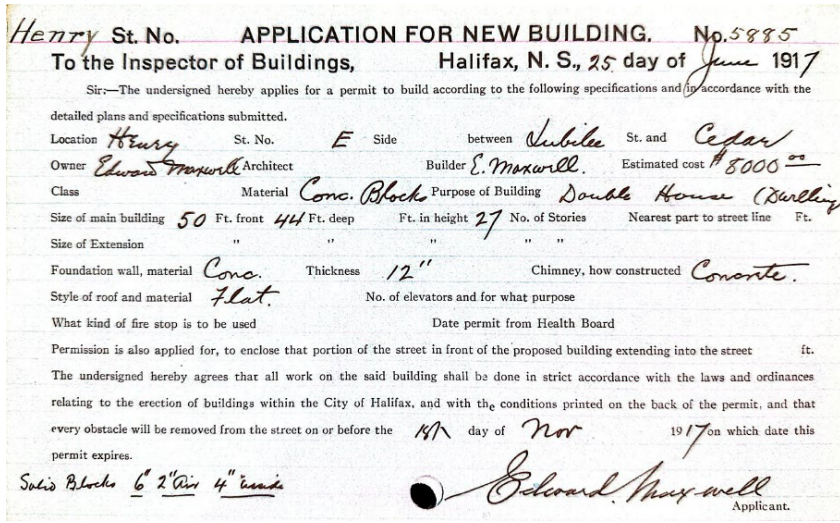 Henry St. No. APPLICATION FOR NEW BUILDING. No. 5885
To the Inspector of Buildings, Halifax, N. S., 25 day of June 1917
Sir:—The undersigned hereby applies for a permit to build according to the following specifications and in accordance with the
detailed plans and specifications submitted.
Location Henry St. No. E Side between Jubilee St. and Cedar
Owner Edward Maxwell Architect Builder E. Maxwell. Estimated cost $8000 00
Class Material Conc. Blocks Purpose of Building Double House (Dwelling
Size of main building 50 Ft. front 44 Ft. deep Ft. in height 27 No. of Stories Nearest part to street line Ft.
Size of Extension " " " " "
Foundation wall, material Conc. Thickness 12" Chimney, how constructed Concrete.
Style of roof and material Flat. No. of elevators and for what purpose
What kind of fire stop is to be used Date permit from Health Board
Permission is also applied for, to enclose that portion of the street in front of the proposed building extending into the street ft.
The undersigned hereby agrees that all work on the said building shall be done in strict accordance with the laws and ordinances
relating to the erection of buildings within the City of Halifax, and with the conditions printed on the back of the permit, and that
every obstacle will be removed from the street on or before the day of Nov 1917 on which date this
permit expires.
Solid Blocks 6" 2" Air 4" inside
Edward Maxwell
Applicant.